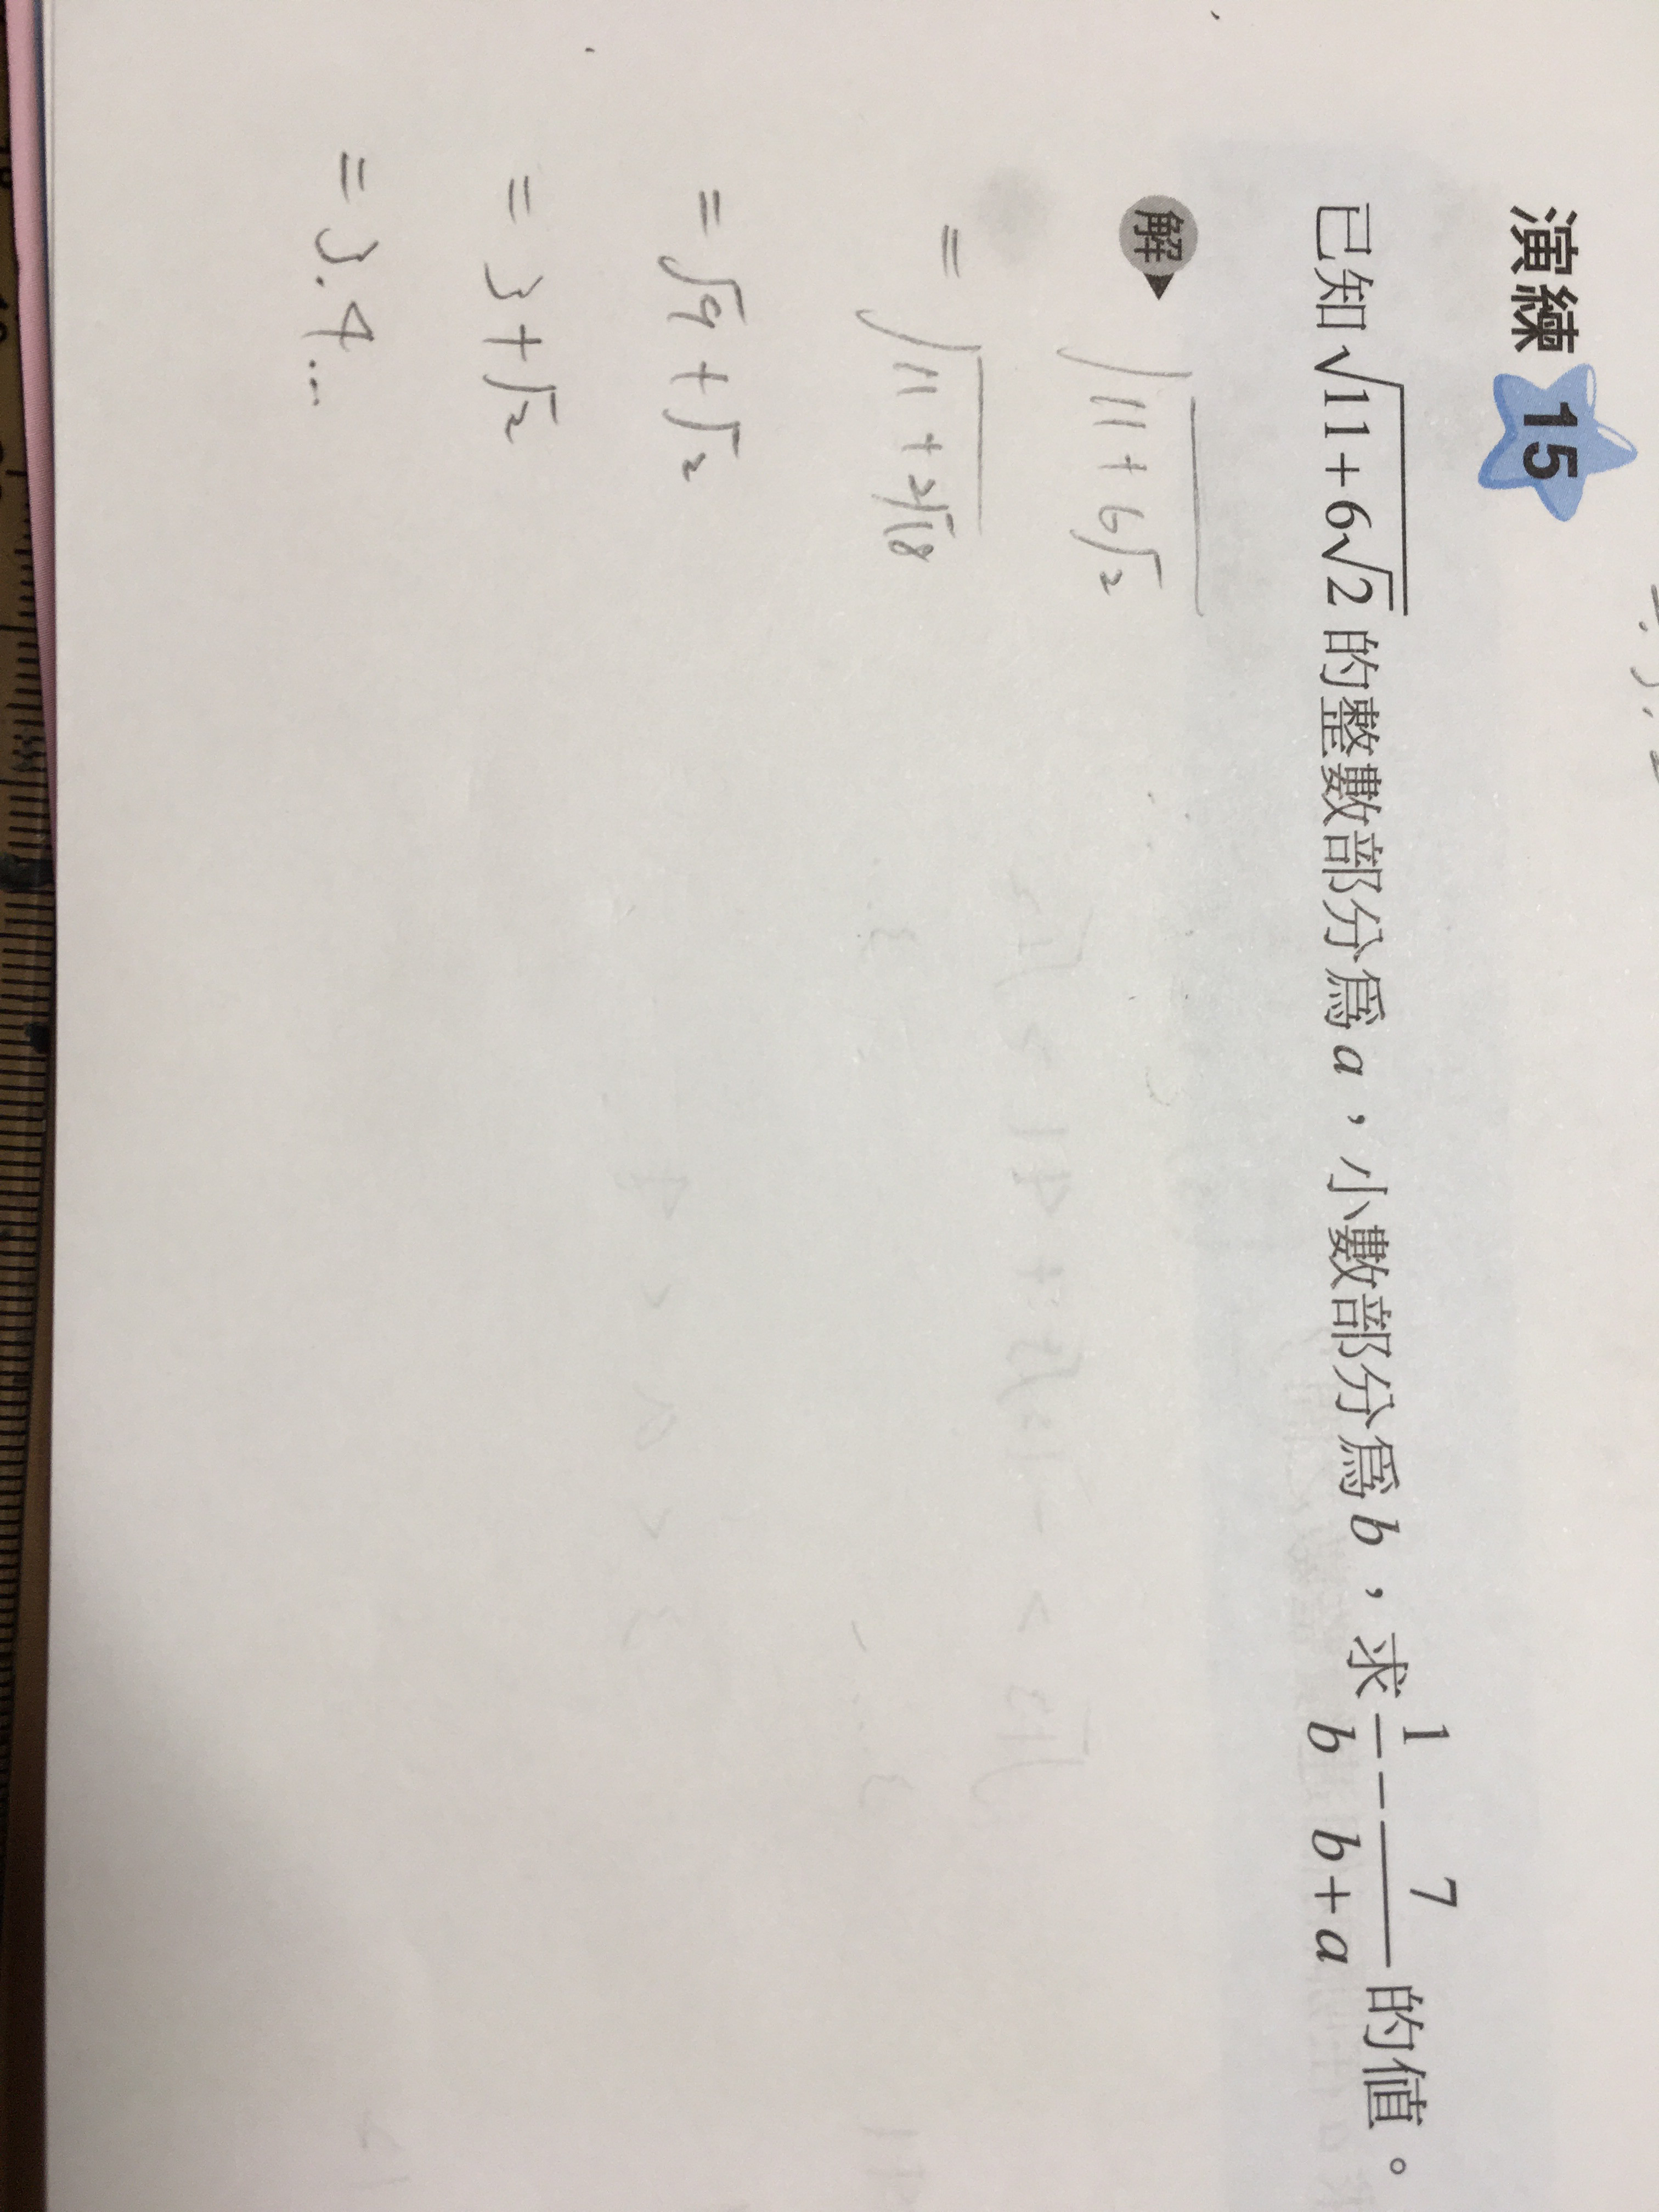 演練 15
已知 √(11+6√2) 的整數部分為 a，小數部分為 b，求 1/b − 7/(b+a) 的值。
解
√(11+6√2)
= √(11+2√18)
= √9+√2
= 3+√2
= 3.4...